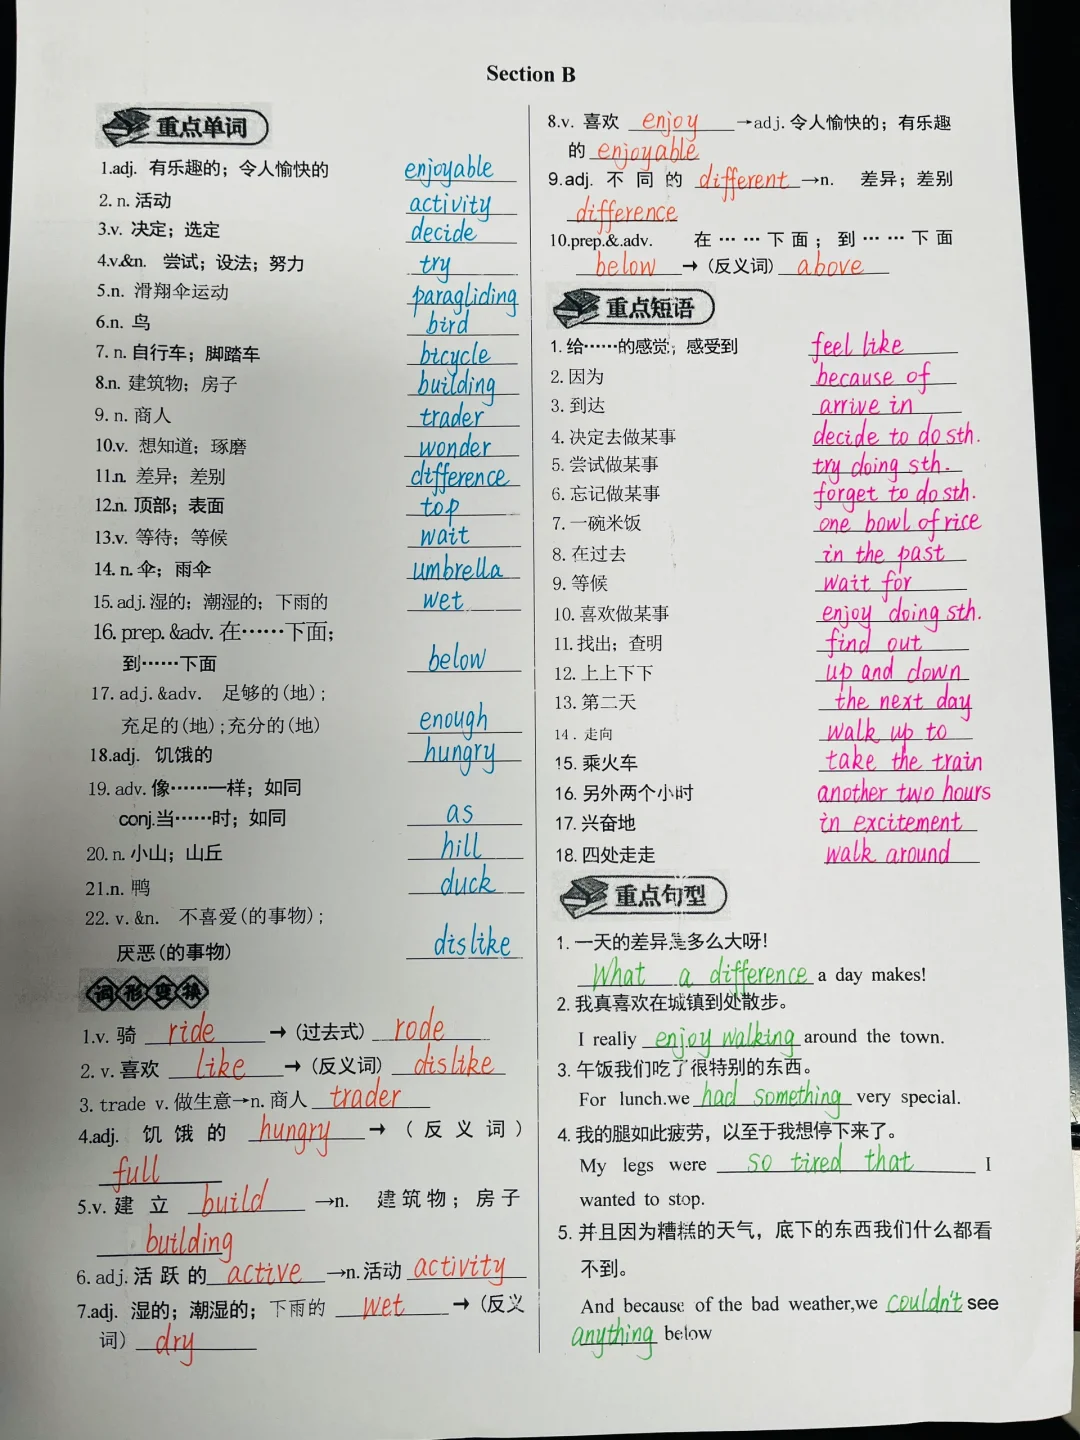 Section B
重点单词
1.adj. 有乐趣的；令人愉快的 enjoyable
2. n. 活动 activity
3.v. 决定；选定 decide
4.v.&n. 尝试；设法；努力 try
5.n. 滑翔伞运动 paragliding
6.n. 鸟 bird
7. n. 自行车；脚踏车 bicycle
8.n. 建筑物；房子 building
9. n. 商人 trader
10.v. 想知道；琢磨 wonder
11.n. 差异；差别 difference
12.n. 顶部；表面 top
13.v. 等待；等候 wait
14. n. 伞；雨伞 umbrella
15. adj. 湿的；潮湿的；下雨的 wet
16. prep. &adv. 在……下面；
到……下面 below
17. adj. &adv. 足够的(地)；
充足的(地)；充分的(地) enough
18.adj. 饥饿的 hungry
19. adv. 像……一样；如同
conj.当……时；如同 as
20. n. 小山；山丘 hill
21.n. 鸭 duck
22. v. &n. 不喜爱(的事物)；
厌恶(的事物) dislike
词形变换
1.v. 骑 ride → (过去式) rode
2. v. 喜欢 like → (反义词) dislike
3. trade v. 做生意→n. 商人 trader
4.adj. 饥饿的 hungry → (反义词)
full
5.v. 建立 build →n. 建筑物；房子
building
6. adj. 活跃的 active →n. 活动 activity
7.adj. 湿的；潮湿的；下雨的 wet → (反义
词) dry
8.v. 喜欢 enjoy →adj. 令人愉快的；有乐趣
的 enjoyable
9.adj. 不同的 different →n. 差异；差别
difference
10.prep.&.adv. 在……下面；到……下面
below → (反义词) above
重点短语
1. 给……的感觉；感受到 feel like
2. 因为 because of
3. 到达 arrive in
4. 决定去做某事 decide to do sth.
5. 尝试做某事 try doing sth.
6. 忘记做某事 forget to do sth.
7. 一碗米饭 one bowl of rice
8. 在过去 in the past
9. 等候 wait for
10. 喜欢做某事 enjoy doing sth.
11. 找出；查明 find out
12. 上上下下 up and down
13. 第二天 the next day
14. 走向 walk up to
15. 乘火车 take the train
16. 另外两个小时 another two hours
17. 兴奋地 in excitement
18. 四处走走 walk around
重点句型
1. 一天的差异是多么大呀!
What a difference a day makes!
2. 我真喜欢在城镇到处散步。
I really enjoy walking around the town.
3. 午饭我们吃了很特别的东西。
For lunch.we had something very special.
4. 我的腿如此疲劳，以至于我想停下来了。
My legs were so tired that I
wanted to stop.
5. 并且因为糟糕的天气，底下的东西我们什么都看
不到。
And because of the bad weather,we couldn't see
anything below